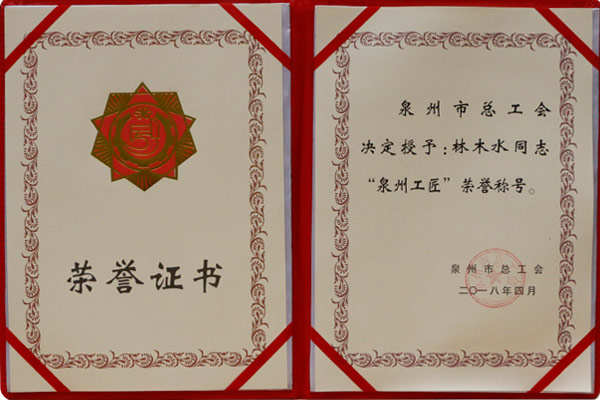 荣誉证书
泉州市总工会
决定授予：林木水同志
“泉州工匠”荣誉称号。
泉州市总工会
二〇一八年四月